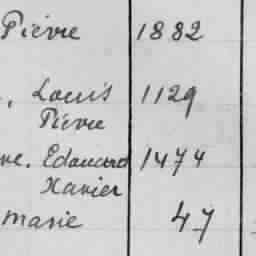 Pierre 1882
, Louis 1129
Pierre
ve. Edouard 1474
Xavier
Marie 47